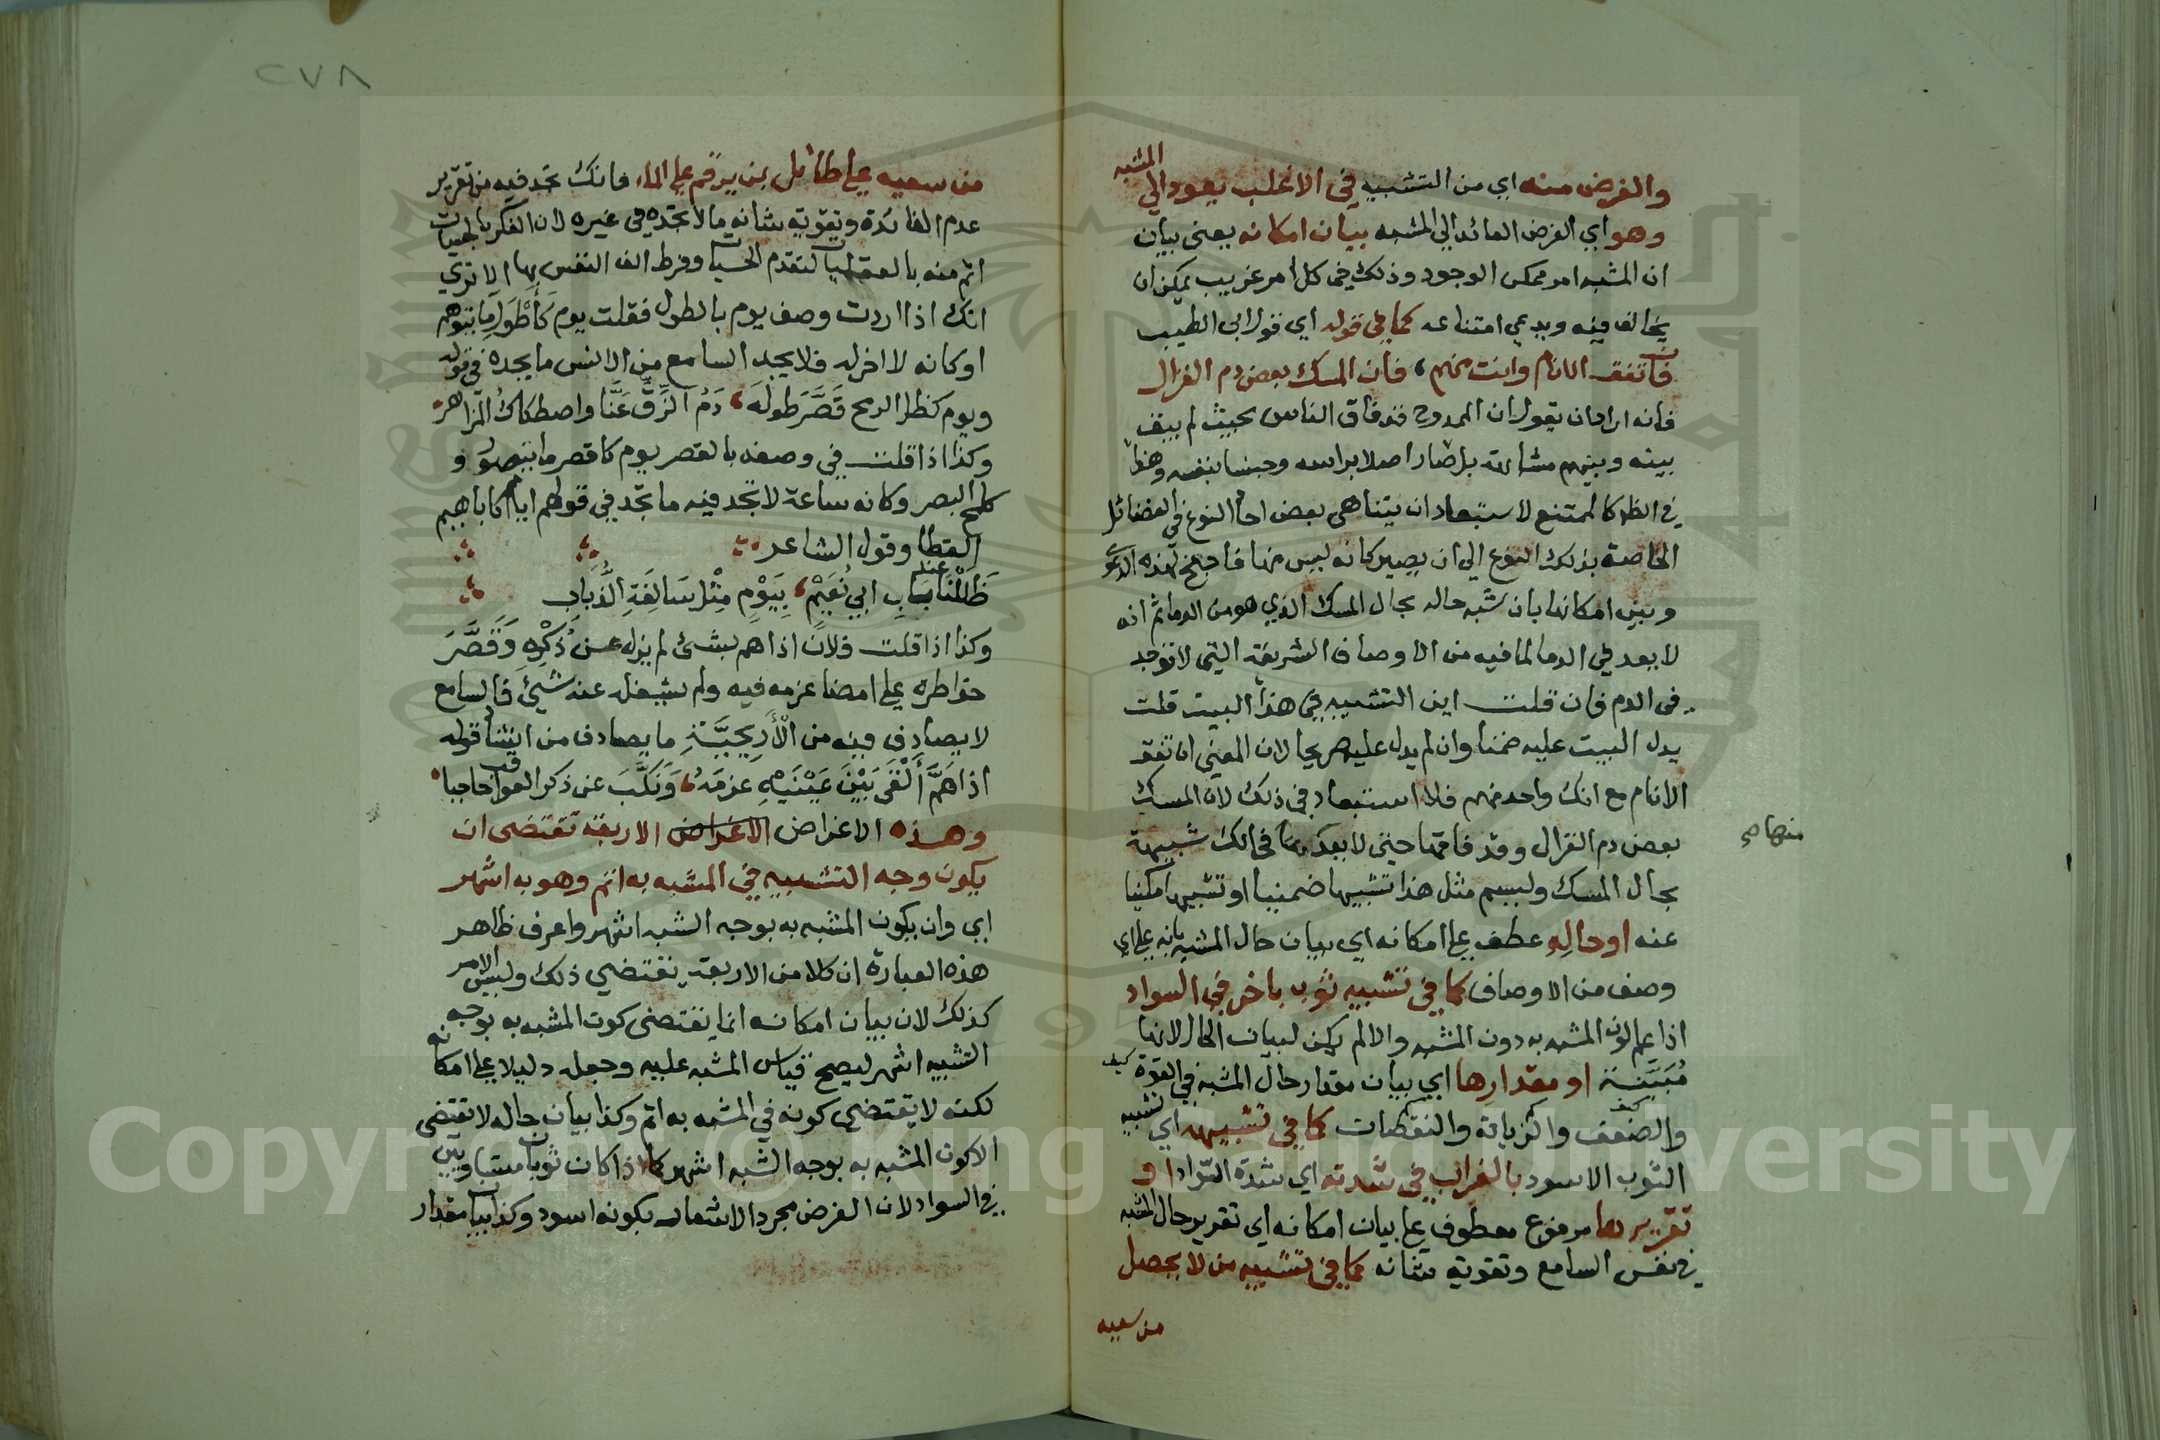 والغرض منه اي من التشبيه في الاغلب يعود الي المشبه
وهو اي الغرض العائد الي المشبه بيان امكانه يعني بيان
ان المشبه امر ممكن الوجود وذلك في كل امر غريب يمكن ان
يخالف فيه ويدعي امتناعه كما في قوله اي قول ابي الطيب
فان تفق الانام وانت منهم ، فان المسك بعض دم الغزال
فانه اراد ان يقول ان الممدوح قد فاق الناس بحيث لم يبق
بينه وبينهم مشابهة بل صار اصلا براسه وجنسا بنفسه وهذا
في الظاهر كالممتنع لاستبعاد ان يتناهي بعض احاد النوع في الفضائل
الخاصة بذلك النوع الي ان يصير كانه ليس منها فاحتج لهذه الدعوي
وبين امكانها بان شبه حاله بحال المسك الذي هو من الدما ثم انه
لا يعد في الدما لما فيه من الاوصاف الشريفة التي لا توجد
في الدم فان قلت اين التشبيه في هذا البيت قلت
يدل البيت عليه ضمنا وان لم يدل عليه صريحا لان المعني ان تفق
الانام مع انك واحد منهم فلا استبعاد في ذلك لان المسك
بعض دم الغزال وقد فاقها حتي لا يعد منها فحالك شبيهة
منها صح
بحال المسك وليسم مثل هذا تشبيها ضمنيا او تشبيها مكنيا
عنه او حاله عطف علي امكانه اي بيان حال المشبه بانه علي اي
وصف من الاوصاف كما في تشبيه ثوب باخر في السواد
اذا علم لون المشبه به دون المشبه والا لم يكن لبيان الحال لانها
مُبَيَّنة او مقدارها اي بيان مقدار حال المشبه في القوة
والضعف والزيادة والنقصان كما في تشبيهه اي تشبيه
الثوب الاسود بالغراب في شدته اي شدة السواد او
تقريرها مرفوع معطوف علي بيان امكانه اي تقرير حال المشبه
في نفس السامع وتقوية شانه كما في تشبيه من لا يحصل
من سعيه
٢٧٨
من سعيه علي طائل بمن يرقم علي الماء فانك تجد فيه من تقرير
عدم الفائدة وتقوية شانه ما لا تجده في غيره لان الفكر بالحسيات
اتم منه بالعقليات لتقدم الحسيات وفرط الف النفس بها الا تري
انك اذا اردت وصف يوم بالطول فقلت يوم كَأَطْوَل ما يتوهم
او كانه لا اخر له فلا يجد السامع من الانس ما يجده في قوله
ويوم كظل الرمح قَصَّرَ طولَه ، دَمُ الزِّقّ عَنَّا واصطكاكُ المزاهر
وكذا اذا قلت في وصفه بالقصر يوم كاقصر ما يتصور و
كلمح البصر وكانه ساعة لا تجد فيه ما تجد في قولهم ايام كاباهيم
القطا وقول الشاعر
ظَلَلْنا عند بَابِ ابي نُعَيْم ، بِيَوْمٍ مِثْل سَالِفَةِ الذُّبابِ
وكذا اذا قلت فلان اذا هم بشئ لم يزل عن ذكره وَقَصَّرَ
خواطره علي امضا عزمه فيه ولم يشغله عنه شئ فالسامع
لا يصادف فيه من الْأَرِيحِيَّةِ ما يصادف من انشا قوله
اذا هَمَّ أَلْقَي بَيْنَ عَيْنَيْهِ عزمَهُ ، وَنَكَّبَ عن ذكر العواقب جانبا
وهذه الاغراض الاغراض الاربعة تقتضي ان
يكون وجه التشبيه في المشبه به اتم وهو به اشهر
اي وان يكون المشبه به بوجه الشبه اشهر واعرف ظاهر
هذه العبارة ان كلا من الاربعة يقتضي ذلك وليس الامر
كذلك لان بيان امكانه انما يقتضي كون المشبه به بوجه
التشبيه اشهر ليصح قياس المشبه عليه وجعله دليلا علي امكانه
لكنه لا يقتضي كونه في المشبه به اتم وكذا بيان حاله لا يقتضي
الا كون المشبه به بوجه الشبه اشهر كما اذا كان ثوبان متساويين
في السواد لان الغرض مجرد الاشعار بكونه اسود وكذا بيان مقدار
Copyright © King Saud University